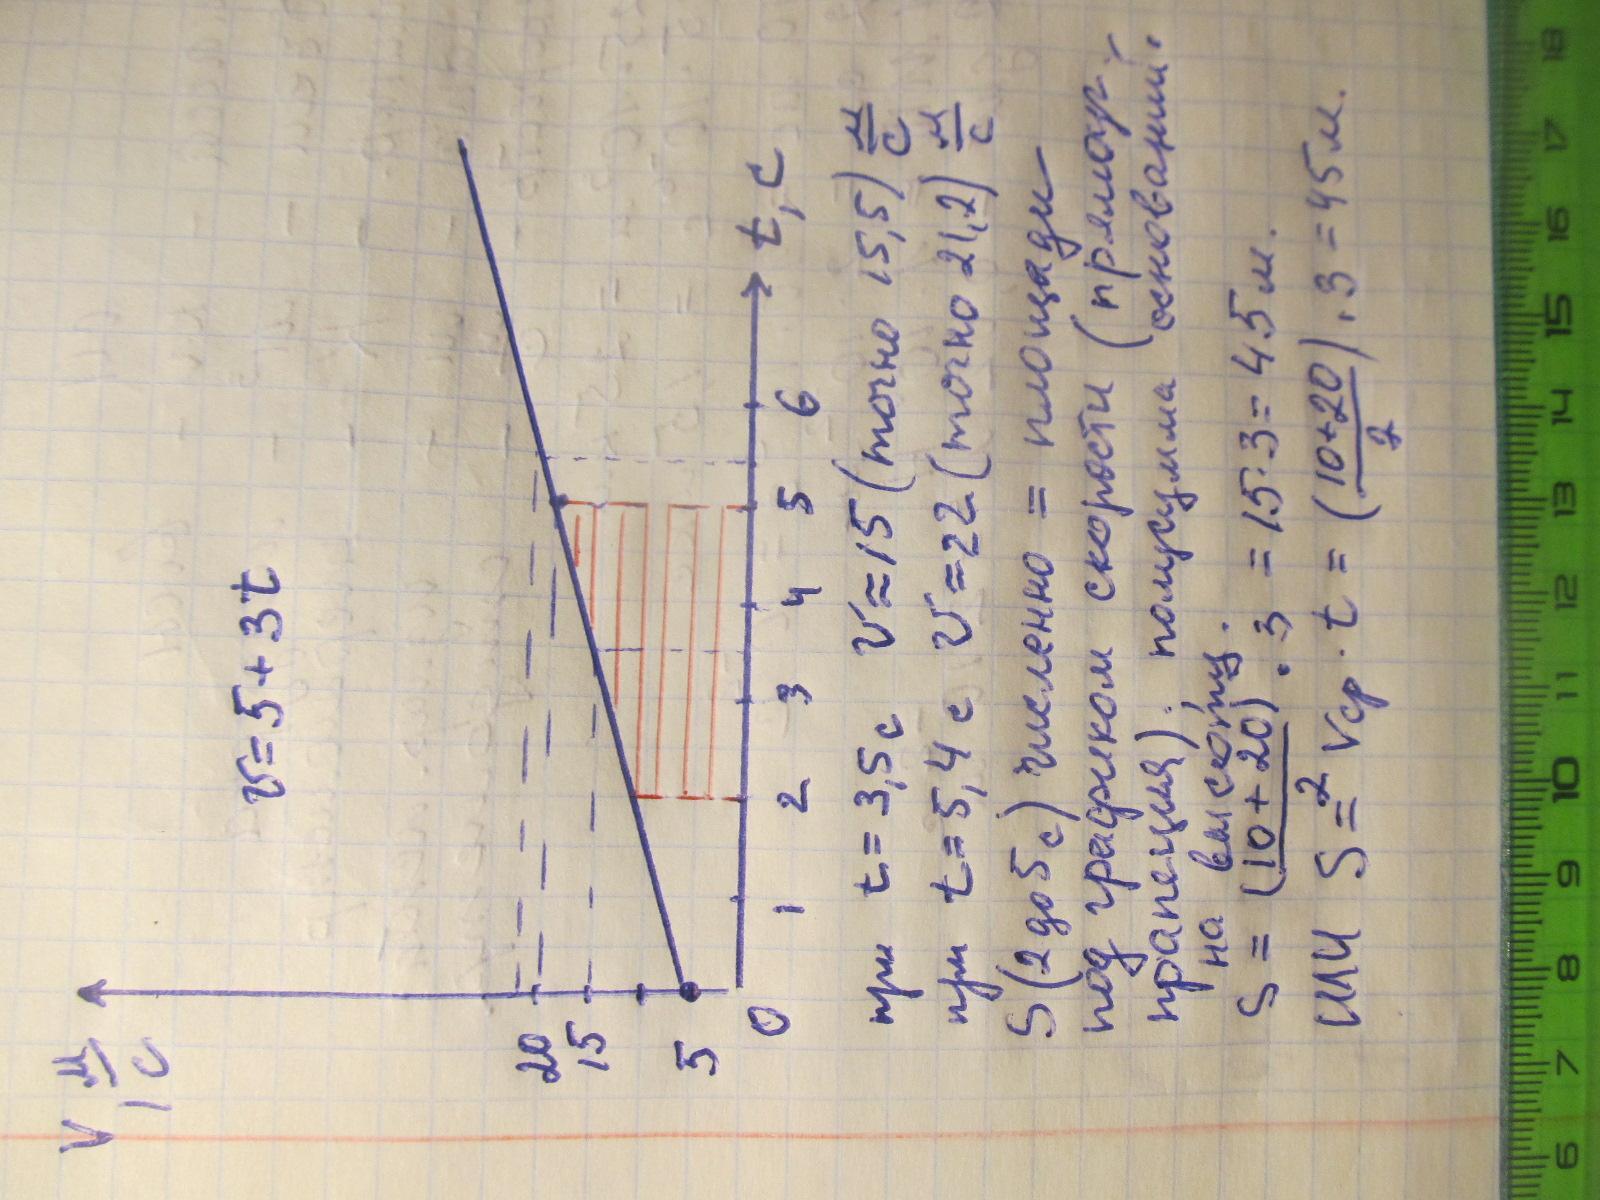 V, м/с
v=5+3t
20
15
5
0 1 2 3 4 5 6 t, с
при t=3,5с v≈15 (точно 15,5) м/с
при t=5,4с v≈22 (точно 21,2) м/с
S(2 до 5с) численно = площади
под графиком скорости (прямоуг.
трапеция); полусумма оснований.
на высоту.
S = (10+20)/2 · 3 = 15·3 = 45м.
или S = vср · t = (10+20)/2 · 3 = 45м.
6 7 8 9 10 11 12 13 14 15 16 17 18